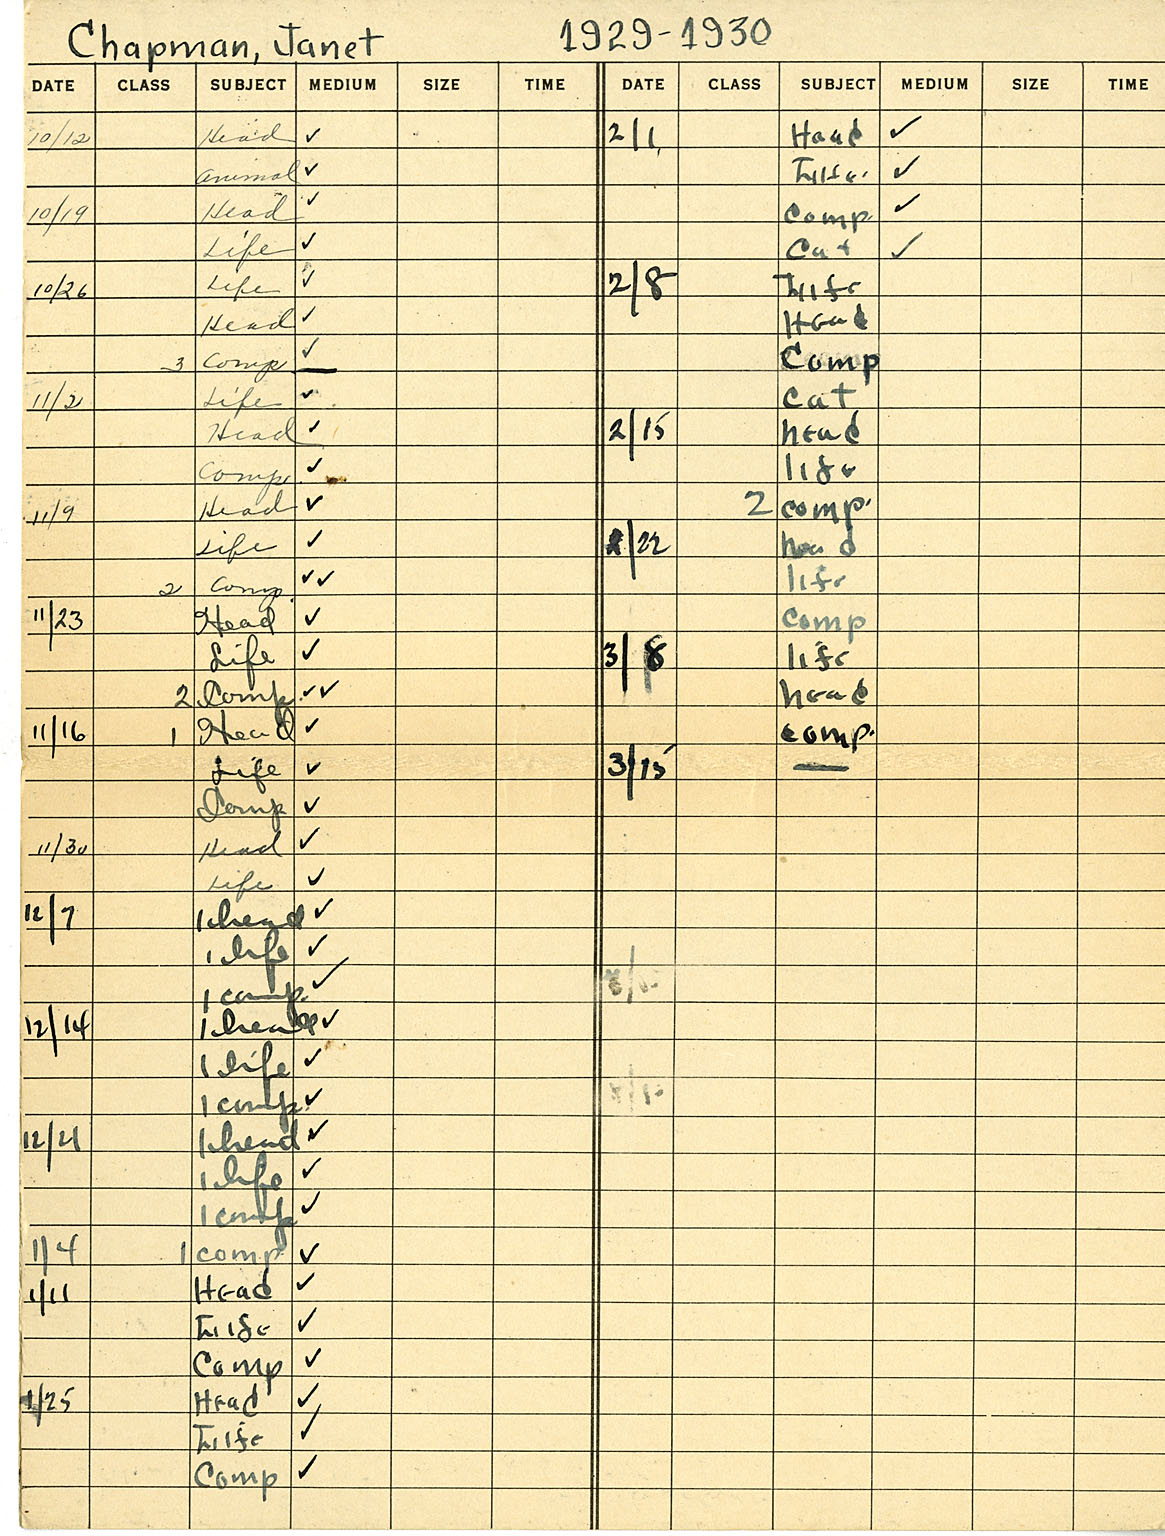 Chapman, Janet 1929-1930
DATE CLASS SUBJECT MEDIUM SIZE TIME DATE CLASS SUBJECT MEDIUM SIZE TIME
10/12 Head ✓
Animal ✓
10/19 Head ✓
Life ✓
10/26 Life ✓
Head ✓
3 Comp ✓
11/2 Life ✓
Head ✓
Comp. ✓
11/9 Head ✓
Life ✓
2 Comp. ✓✓
11/23 Head ✓
Life ✓
2 Comp. ✓✓
11/16 1 Head ✓
Life ✓
Comp ✓
11/30 Head ✓
Life ✓
12/7 1 head ✓
1 life ✓
1 comp. ✓
12/14 1 head ✓
1 life ✓
1 comp. ✓
12/21 1 head ✓
1 life ✓
1 comp ✓
1/4 1 comp ✓
1/11 Head ✓
Life ✓
Comp ✓
1/25 Head ✓
Life ✓
Comp ✓
2/1 Head ✓
Life. ✓
Comp. ✓
Cat ✓
2/8 Life
Head
Comp
Cat
2/15 head
life
2 comp.
2/22 head
life
comp
3/8 life
head
comp.
3/15 —